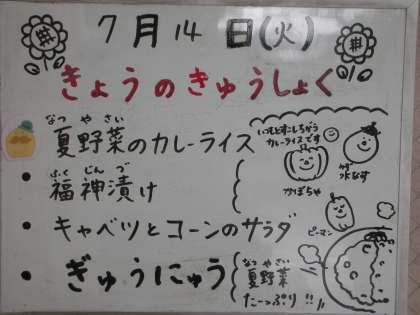 7月14日(火)
きょうのきゅうしょく
なつ や さい
夏野菜のカレーライス
いつもとすこしちがう
カレーライスです
ふく じん づ
福神漬け
かぼちゃ
水なす
キャベツとコーンのサラダ
ピーマン
ぎゅうにゅう
なつ や さい
夏野菜
たーっぷり!!